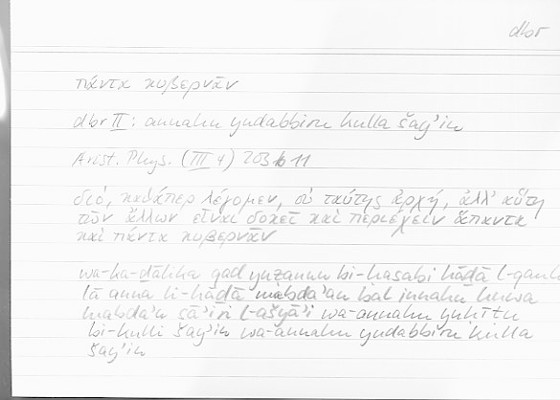 dbr
πάντα κυβερνᾶν
dbr II: annahu yudabbiru kulla šayʾin
Arist. Phys. (III 4) 203 b 11
διό, καθάπερ λέγομεν, οὐ ταύτης ἀρχή, ἀλλ' αὕτη
τῶν ἄλλων εἶναι δοκεῖ καὶ περιέχειν ἅπαντα
καὶ πάντα κυβερνᾶν
wa-ka-ḏālika qad yuẓannu bi-ḥasabi hāḏā l-qauli
lā anna li-hāḏā mabdaʾan bal innahu huwa
mabdaʾu sāʾiri l-ašyāʾi wa-annahu yuḥīṭu
bi-kulli šayʾin wa-annahu yudabbiru kulla
šayʾin